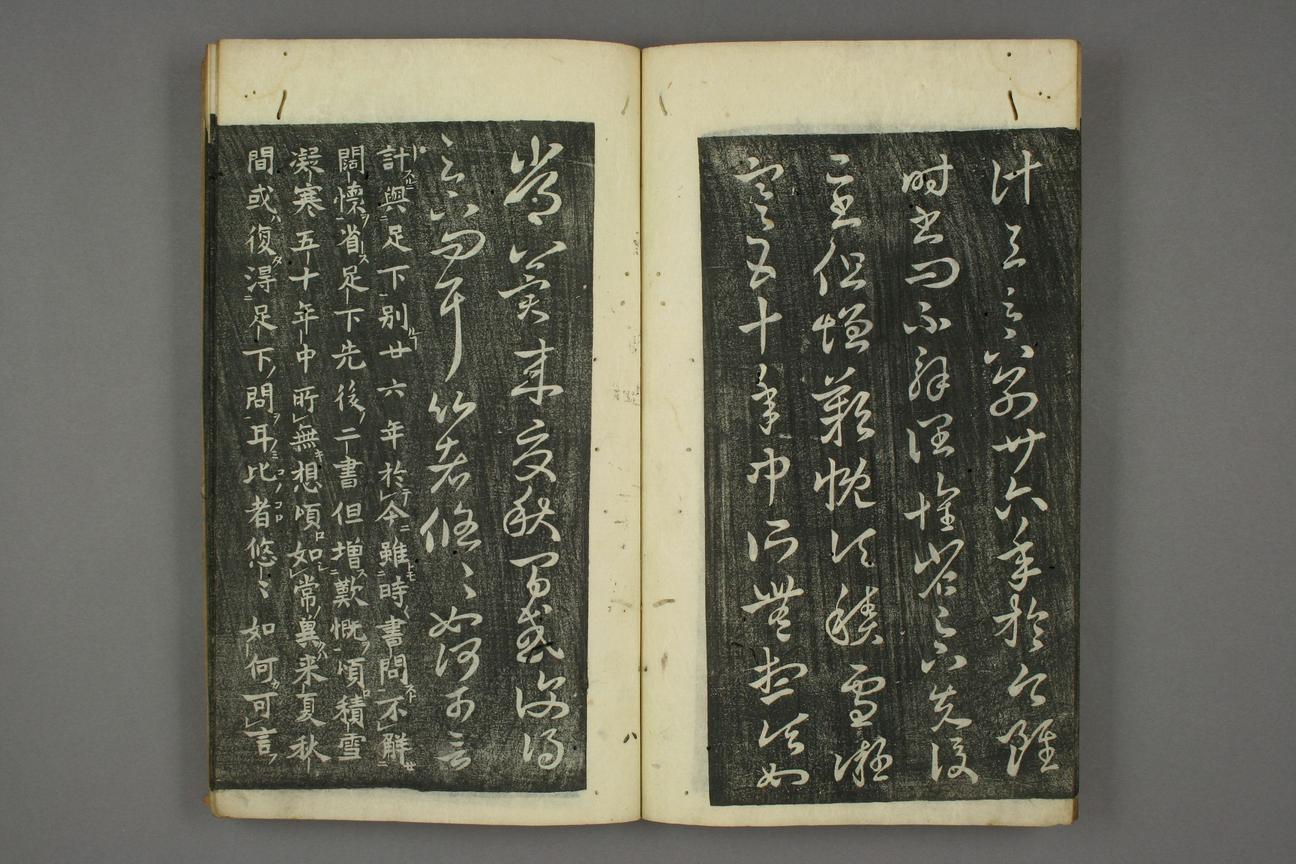 計与足下別廿六年於今雖
時書問不解闊懷省足下先後
二書但増歎慨頃積雪凝
寒五十年中所無想頃如
常冀来夏秋間或復得
足下問耳比者悠〻如何可言
計與足下別廿六年於今雖時〻書問不解
闊懷省足下先後二書但増歎慨頃積雪
凝寒五十年中所無想頃如常冀来夏秋
間或復得足下問耳比者悠〻如何可言